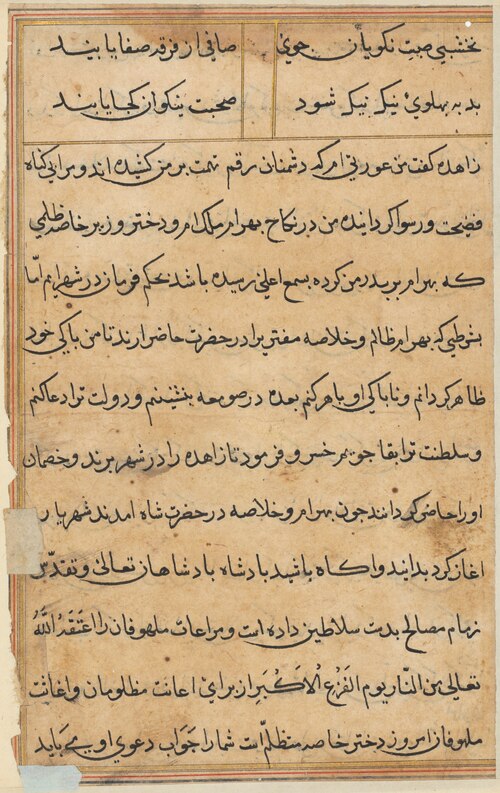 نخشبی صبت نکویان جوی صافی از فرقه صفا یابیند
بد به پهلوی نیک نیک شود صحبت نیکوان کجا یابند
زاهده کفت من عورتی ام که دشمنان رقم تهمت بر من کشیده اند و مرا بی کناه
فضیحت و رسوا کردانیده من در نکاح بهرام ملک ام و دختر وزیر خاصه ظلمی
که بهرام بر پدر من کرده بسمع اعلی رسیده باشد بحکم فرمان در شهر ایم اما
بشرطی که بهرام ظالم و خلاصه مفتر برادر حضرت حاضر ارند تا من پاکی خود
ظاهر کردانم و ناپاکی او باهر کنم بعده در صومعه بنشینم و دولت ترا دعا کنم
و سلطنت ترا بقا جویم خسرو فرمود تا زاهده را در شهر برند و خصمان
او را حاضر کردانند جون بهرام و خلاصه در حضرت شاه امدند شهریار
اغاز کرد بدانید و اکاه باشید بادشاه بادشاهان تعالی و تقدس
زمام مصالح بدست سلاطین داده است و مراعات ملهوفان را اعتقد الله
تعالی من النار یوم الفزع الاکبر از برای اعانت مظلومان و اغاثت
ملهوفان امروز دختر خاصه متظلم است شما را جواب دعوی او می باید